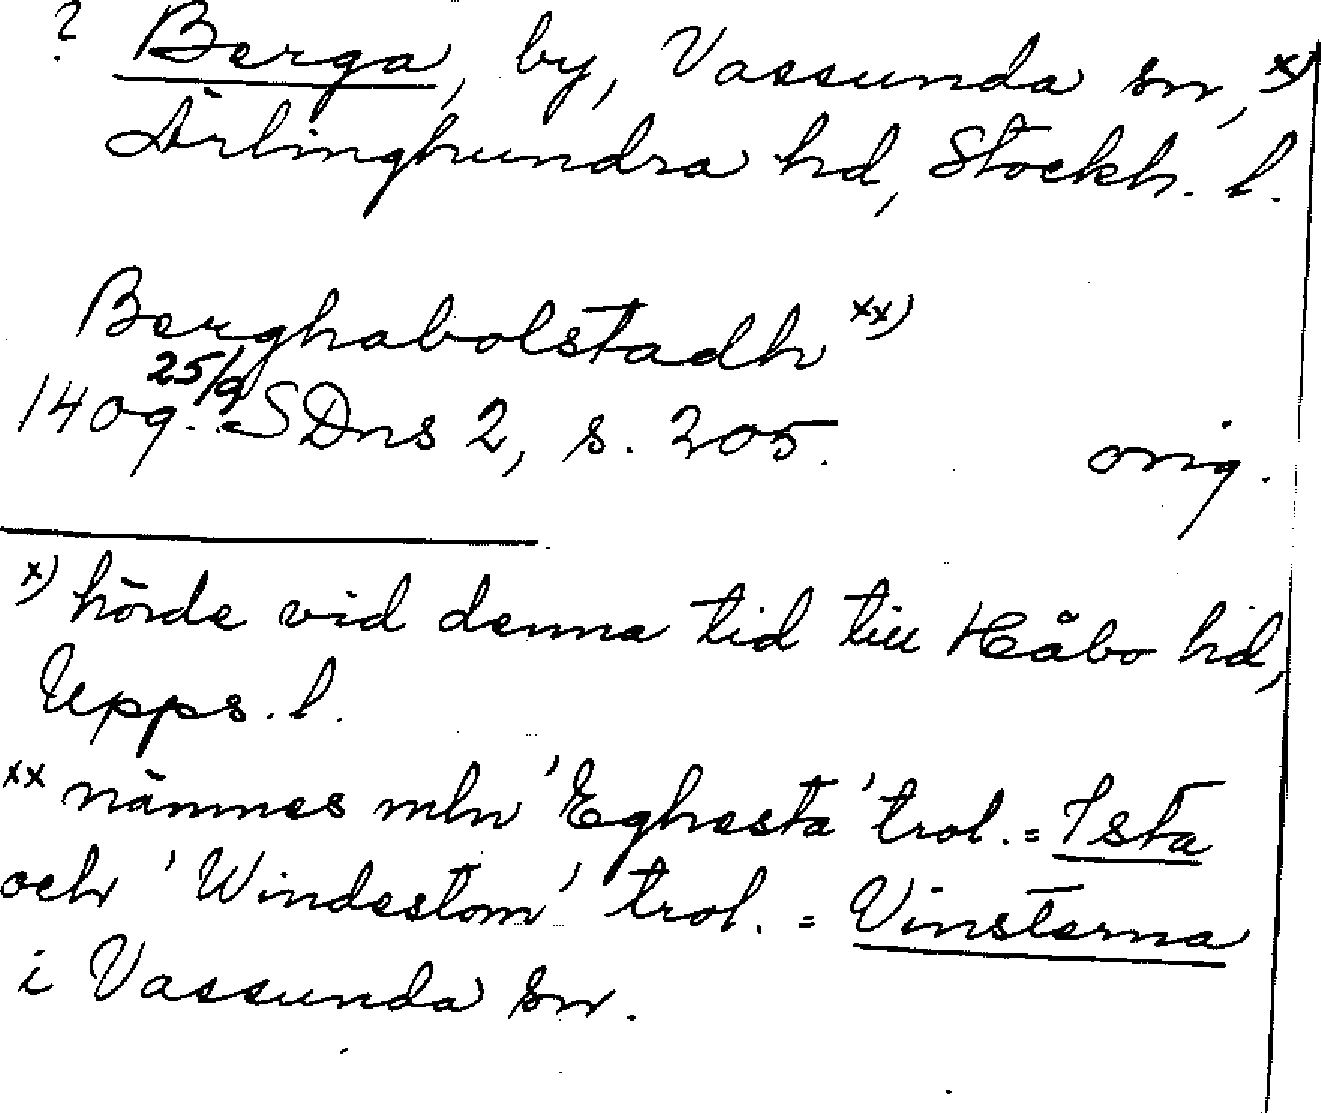 ? Berga, by, Vassunda sn, x)
Ärlinghundra hd, Stockh. l.
Berghabolstadh xx)
1409 25/9. SDns 2, s. 205. orig.
x) hörde vid denna tid till Håbo hd,
Upps. l.
xx nämnes mln 'Eghesta' trol. = Ista
och 'Windestom' trol. = Vinsterna
i Vassunda sn.